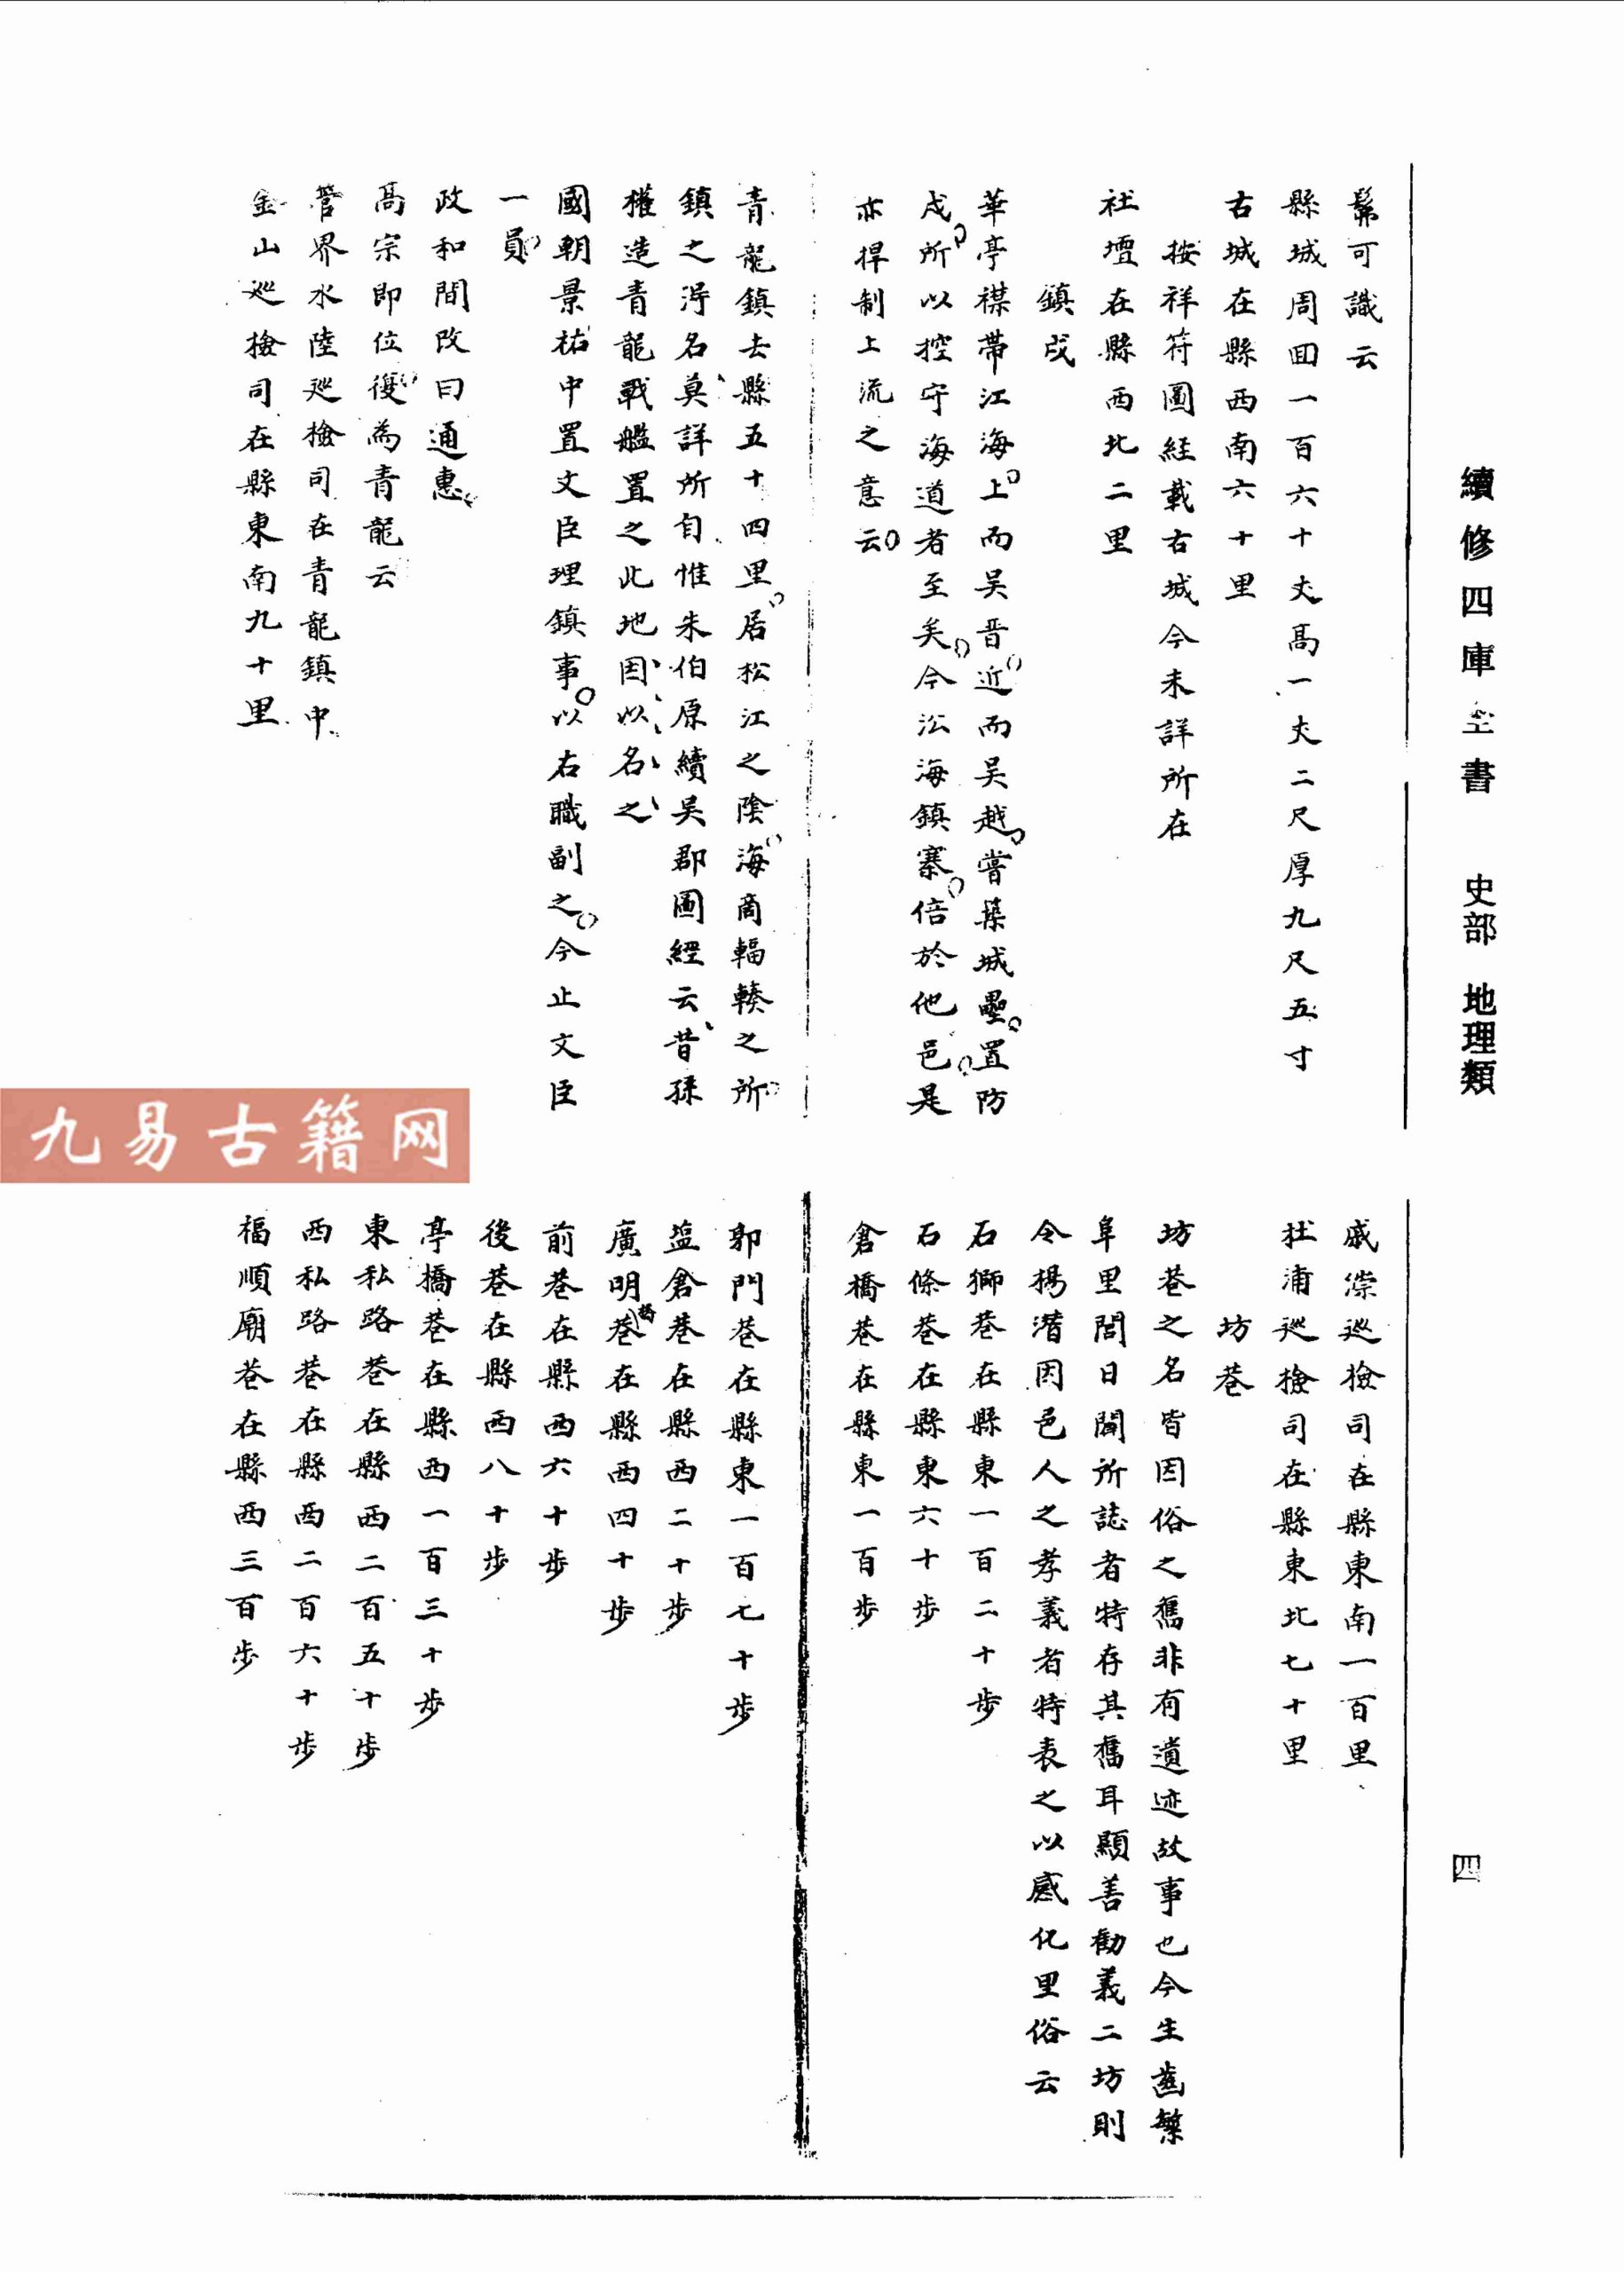 續修四庫全書 史部 地理類
四
髴可識云
縣城周回一百六十丈高一丈二尺厚九尺五寸
古城在縣西南六十里
按祥符圖経載右城今未詳所在
社壇在縣西北二里
鎮戍
華亭襟帶江海上而吴晋近而吴越嘗築城壘置防
戍所以控守海道者至矣今沿海鎮寨倍於他邑是
亦捍制上流之意云
青龍鎮去縣五十四里居松江之陰海商輻輳之所
鎮之淂名莫詳所自惟朱伯原續吴郡圖經云昔孫
權造青龍戰艦置之此地因以名之
國朝景祐中置文臣理鎮事以右職副之今止文臣
一員
政和間改曰通惠
髙宗即位復為青龍云
管界水陸廵檢司在青龍鎮中
金山廵檢司在縣東南九十里
戚漴廵檢司在縣東南一百里
杜浦廵檢司在縣東北七十里
坊巷
坊巷之名皆因俗之舊非有遺迹故事也今生齒繁
阜里閭日闢所誌者特存其舊耳顯善勸義二坊則
令楊潛因邑人之孝義者特表之以感化里俗云
石獅巷在縣東一百二十步
石條巷在縣東六十步
倉橋巷在縣東一百步
郭門巷在縣東一百七十步
塩倉巷在縣西二十步
廣明橋巷在縣西四十步
前巷在縣西六十步
後巷在縣西八十步
亭橋巷在縣西一百三十步
東私路巷在縣西二百五十步
西私路巷在縣西二百六十步
福順廟巷在縣西三百步
九易古籍网